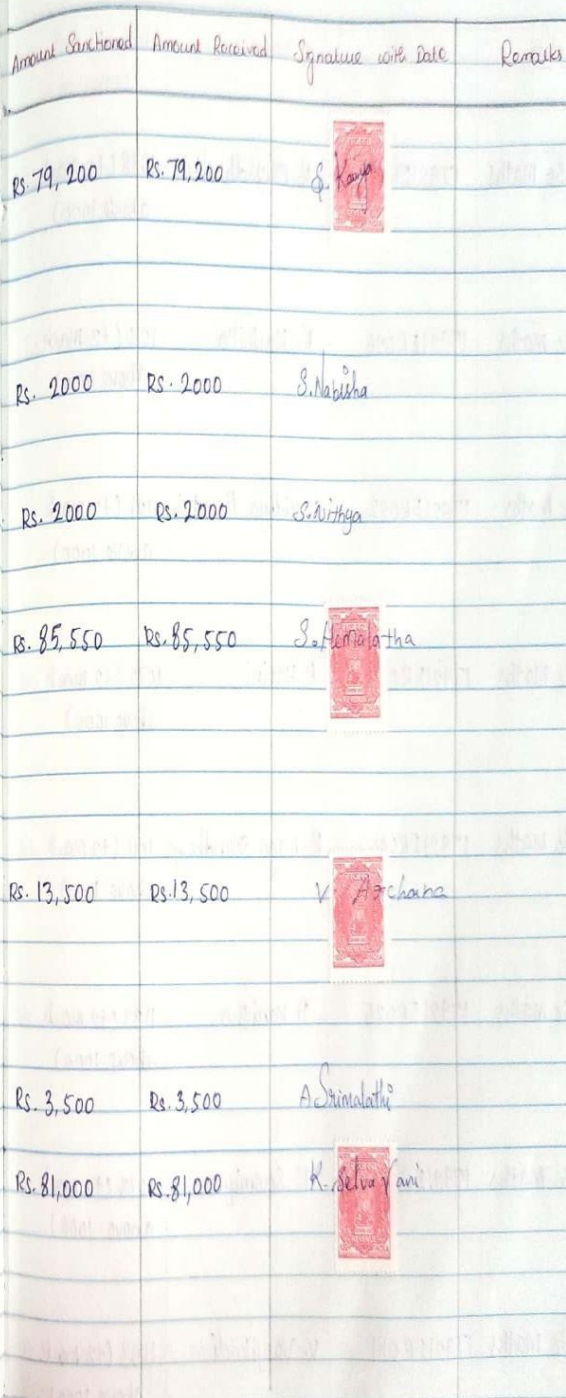 Amount Sanctioned Amount Received Signature with Date Remarks
Rs. 79,200 Rs. 79,200 S. Kavya
Rs. 2000 Rs. 2000 S. Nabisha
Rs. 2000 Rs. 2000 S. Nithya
Rs. 85,550 Rs. 85,550 S. Hemalatha
Rs. 13,500 Rs. 13,500 V. Archana
Rs. 3,500 Rs. 3,500 A Srimalathi
Rs. 81,000 Rs. 81,000 K. Selva Vani
REVENUE